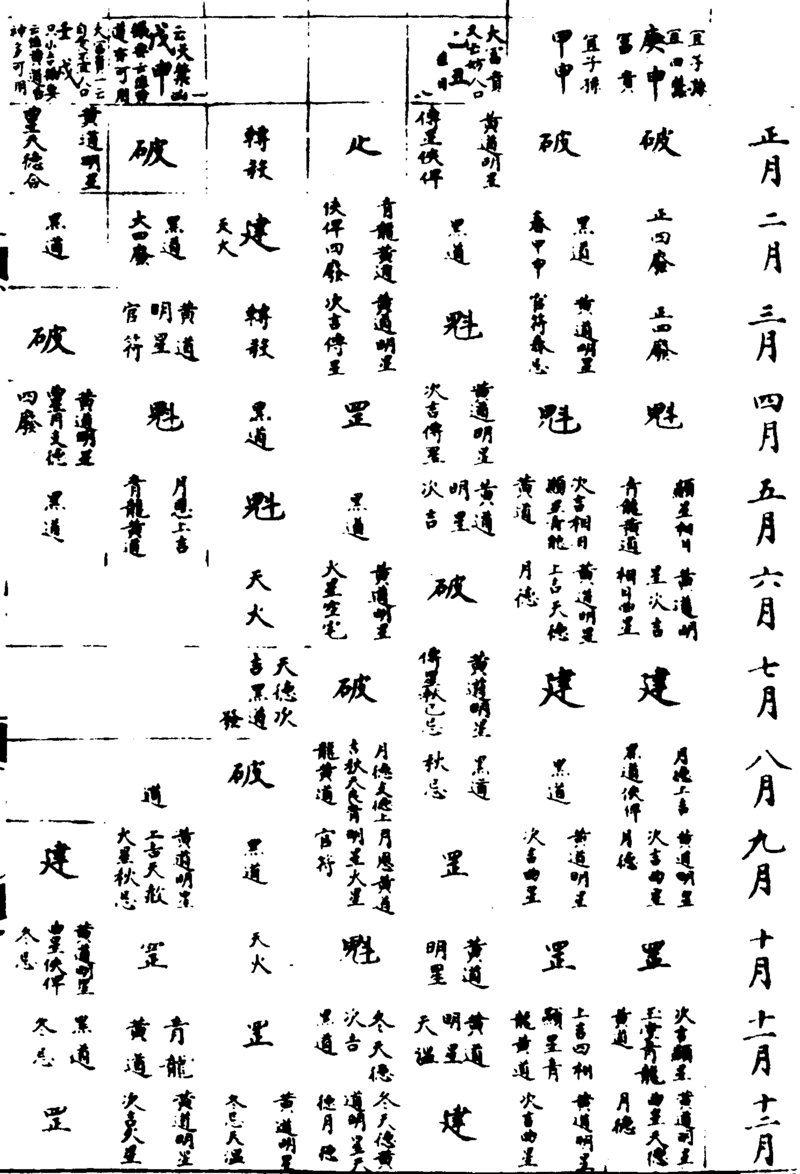 正月 二月 三月 四月 五月 六月 七月 八月 九月 十月 十一月 十二月
宜子孫
宜四
庚申
富貴
破
正四廢
正四廢
魁
顯星相日
青龍黃道
黃道明
星次吉
相日曲星
建
月德上吉
黑道俠俾
黃道明星
次吉曲星
月德
罡
次吉顯星
青龍
黃道
黃道明星
曲星天德
月德
宜子孫
甲申
破
黑道
春甲申
黃道明星
官符春忌
魁
次吉相日
顯星青龍
黃道
黃道明星
上吉天德
月德
建
黑道
黃道明星
次吉曲星
罡
上吉四相
顯星青
龍黃道
黃道明星
次吉曲星
大富貴
人口
丑
黃道明星
傳星俠俾
黑道
魁
黃道明星
次吉傳星
黃道
明星
次吉
破
黃道明星
傳星秋己忌
黑道
秋忌
罡
黃道
明星
黃道
明星
天溫
建
止
青龍黃道
俠俾四廢
黃道明星
次吉傳星
罡
黑道
黃道明星
火星空宅
破
月德支德上
吉秋天良青
龍黃道
月恩黃道
明星火星
官符
魁
冬天德
次吉
黑道
冬天德黃
道明星天
德月德
轉殺
建
天火
轉殺
黑道
魁
天火
天德次
吉黑道
破
黑道
天火
罡
黃道明星
冬忌天溫
戊申
道亦可用
破
黑道
大四廢
黃道
明星
官符
魁
月恩上吉
青龍黃道
道
黃道明星
上吉天赦
火星秋忌
罡
青龍
黃道
黃道明星
次吉火星
大富貴一云
壬戌
神多可用
黃道明星
曲星天德合
黑道
破
黃道明星
曲星月支德
四廢
黑道
建
黃道明星
曲星俠俾
冬忌
黑道
冬忌
罡